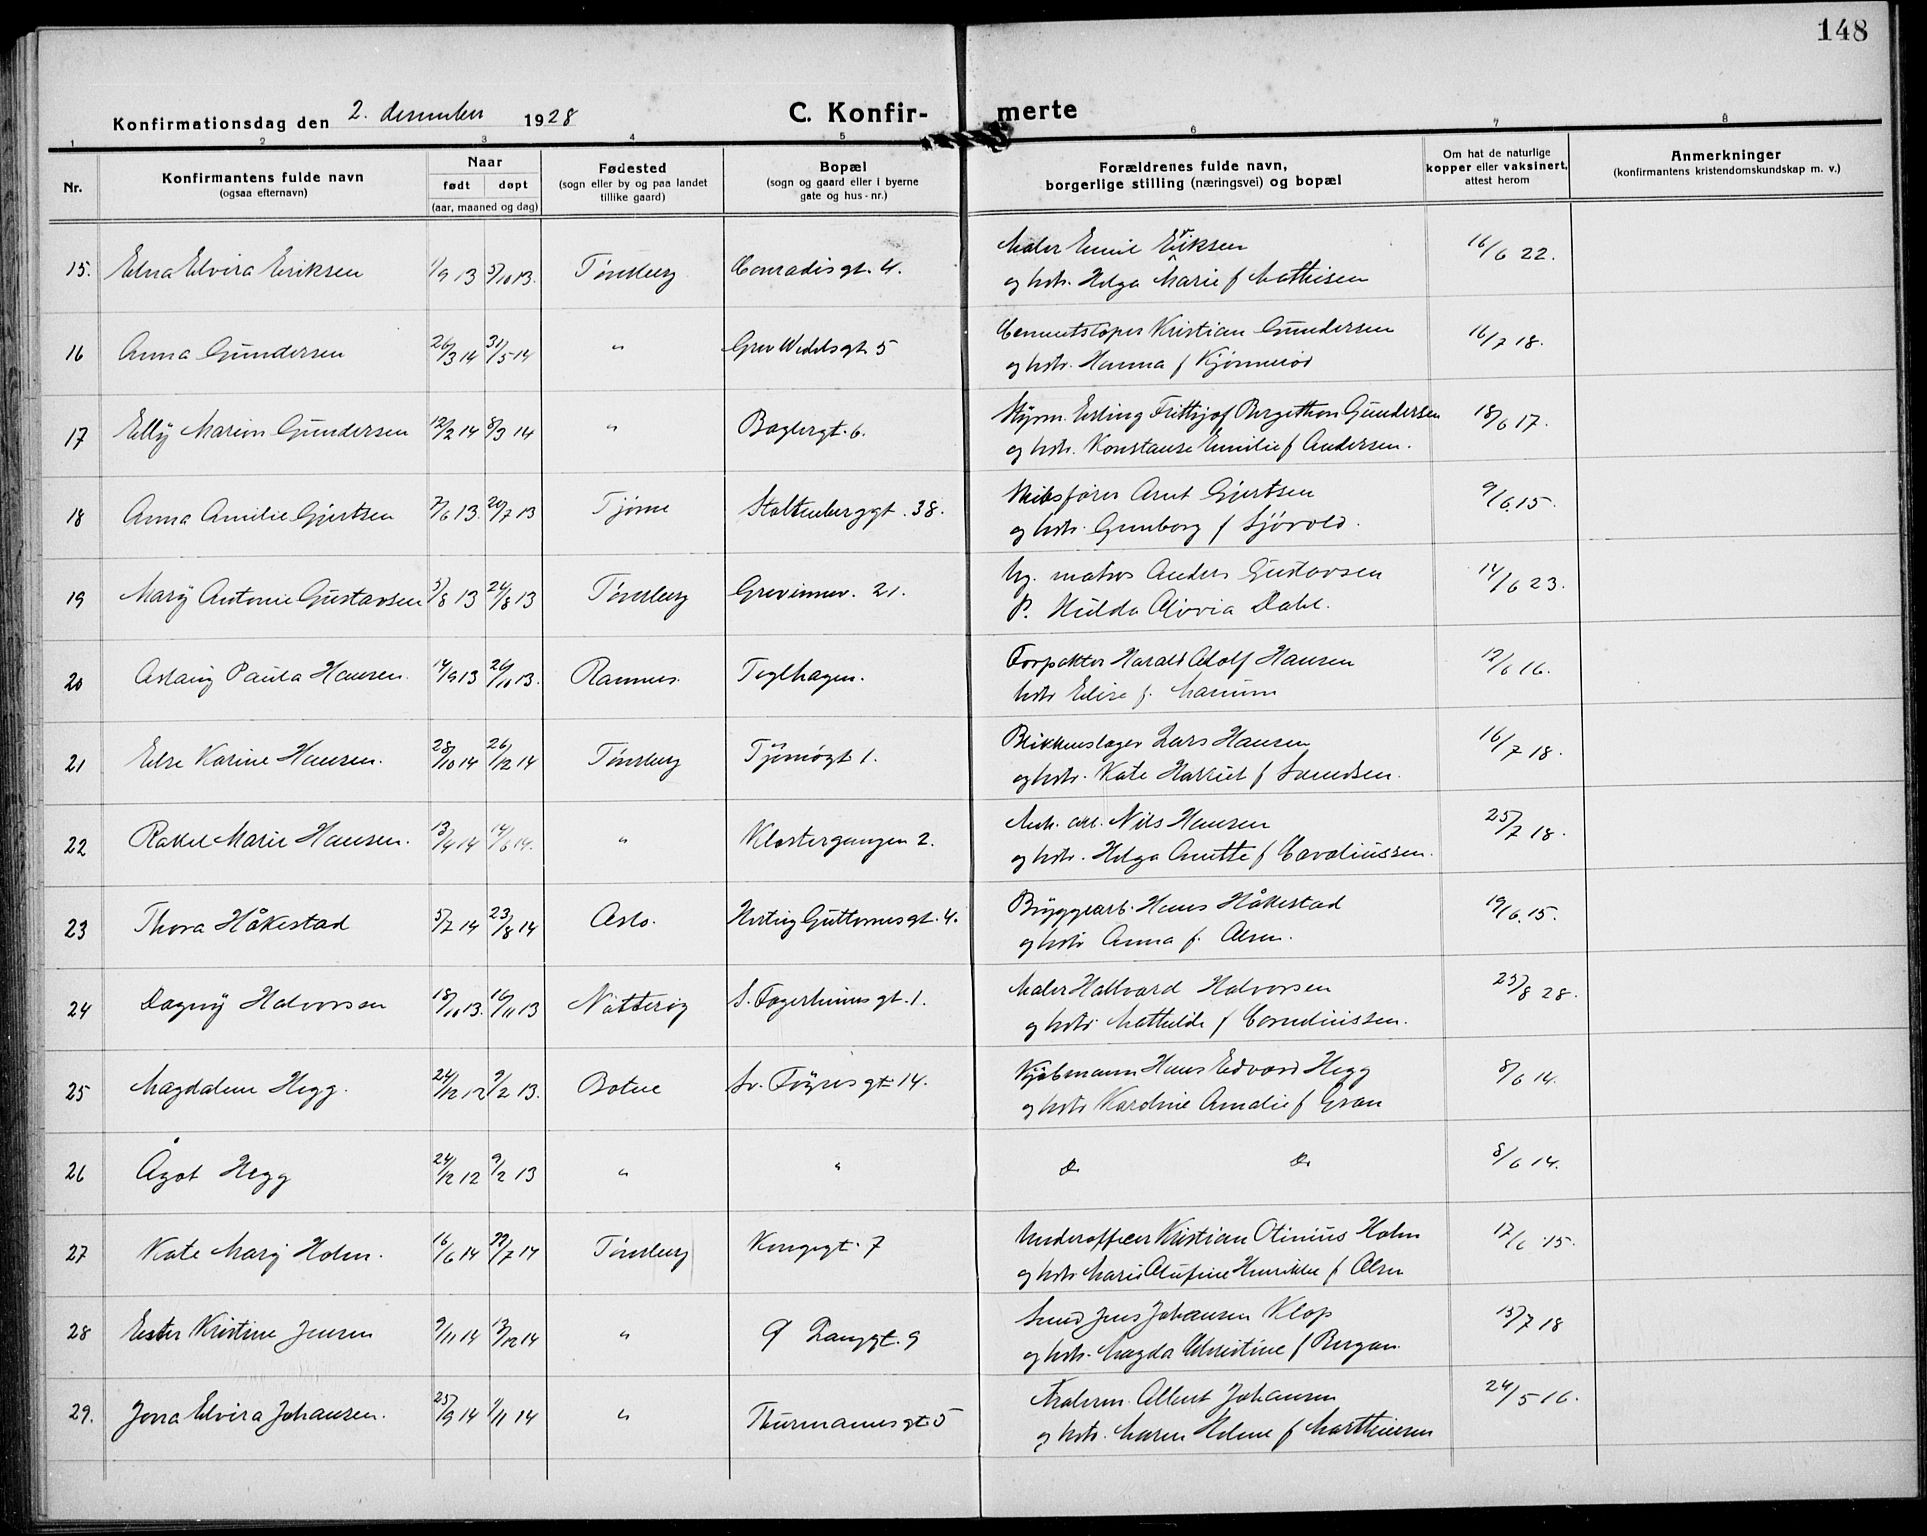 148
Konfirmationsdag den 2. desember 1928 C. Konfir- merte
1 2 3 4 5 6 7 8
Nr.
Konfirmantens fulde navn
(ogsaa efternavn)
Naar
født døpt
(aar, maaned og dag)
Fødested
(sogn eller by og paa landet
tillike gaard)
Bopæl
(sogn og gaard eller i byerne
gate og hus-nr.)
Forældrenes fulde navn,
borgerlige stilling (næringsvei) og bopæl
Om hat de naturlige
kopper eller vaksinert,
attest herom
Anmerkninger
(konfirmantens kristendomskundskap m. v.)
15. Edna Elvira Eriksen 1/9 13 5/10 13. Tønsberg Conradisgt. 4. Maler Emil Eriksen 16/6 22.
og hstr. Helga Marie f Mathisen
16 Anna Gundersen 26/3 14 31/5 14 " Grev Wedelsgt. 5 Cementstøper Kristian Gundersen 16/7 18.
og hstr. Hanna f Kjønnerød
17 Elly Marion Gundersen 12/2 14 8/3 14 " Baglergt. 6. Styrm. Erling Frithjof Bergithon Gundersen 18/6 17.
og hstr. Konstanse Emilie f Andersen.
18 Anna Amilie Gjertsen 7/6 13. 20/7 13 Tjøme Stoltenberggt. 38. Skibsfører Arnt Gjertsen 9/6 15.
og hstr. Gunborg f Sjøvold.
19 Mary Antonie Gustavsen 3/8 13 24/8 13 Tønsberg Grevinnev. 21. Ug. matros Anders Gustavsen 14/6 23.
P. Hulda Alovia Dahl.
20 Aslaug Paula Hansen. 14/9 13 26/10 13. Ramnes. Teglhagen. Forpakter Harald Adolf Hansen 12/6 16.
hstr Elise f.
21 Else Karine Hansen. 28/10 14 26/12 14 Tønsberg Tjømøgt 1. Blikkenslager Lars Hansen 16/7 18.
og hstr. Kate Harriet f
22 Rakel Marie Hansen. 13/4 14 14/6 14. " Klostergangen 2. Nils Hansen 25/7 18.
og hstr. Helga Anette f
23 Thora Håkestad 5/7 14 23/8 14 Oslo. Hertug Guttormsgt. 4. Bryggearb. Hans Håkestad 19/6 15.
og hstr Anna f. Olsen.
24 Dagny Halvorsen 18/10 13. 16/11 13 Nøtterøy S. Fagerheimsgt. 1. Maler Hallvard Halvorsen 23/8 28.
og hstr Mathilde f Corneliussen.
25 Magdalene Hegg. 24/12 12 9/2 13. Botne Sv. Føynsgt 14. Kjøbmann Hans Edvard Hegg 8/6 14.
og hstr Karoline Amalie f Gran
26 Ågot Hegg 24/12 12 9/2 13 " " Do Do 8/6 14.
27 Kate Mary Holm. 16/6 14 29/7 14 Tønsberg Kongegt. 7 Underofficer Kristian Otinius Holm 12/6 15.
og hstr Marie Olufine Henrikke f Olsen
28 Ester Kristine Jensen 9/11 14 13/12 14 " Ø Langgt. 9 Smed Jens Johansen Klop 15/7 18
og hstr. Magda Christine f Bergan.
29. Jona Elvira Johansen. 25/9 14 1/11 14 " Thurmannsgt 5 Albert Johansen 24/5 16.
og hstr. Maren Helene f Marthinsen